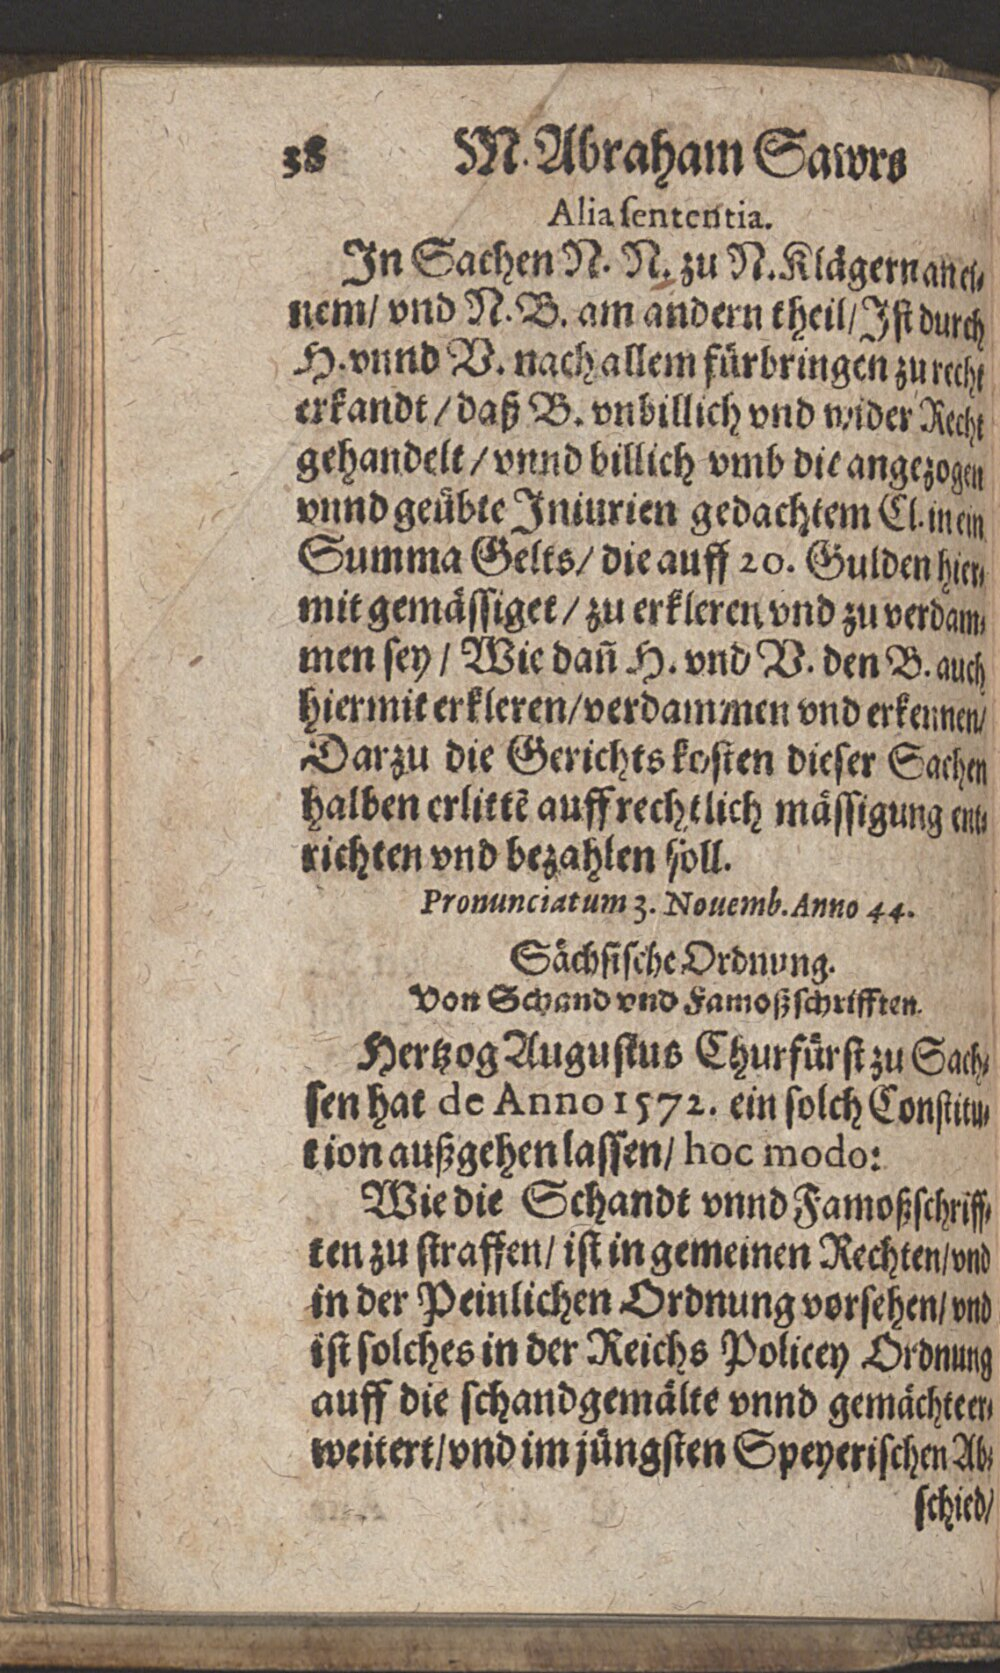 38 M. Abraham Sawrs
Alia sententia.
In Sachen N. N. zu N. Klägern an ei-
nem/ vnd N. B. am andern theil/ Ist durch
H. vnnd V. nach allem fürbringen zu recht
erkandt/ daß B. vnbillich vnd wider Recht
gehandelt/ vnnd billich vmb die angezogen
vnnd geübte Iniurien gedachtem Cl. in ein
Summa Gelts/ die auff 20. Gulden hier-
mit gemässiget/ zu erkleren vnd zu verdam-
men sey/ Wie dañ H. vnd V. den B. auch
hiermit erkleren/ verdammen vnd erkennen/
Darzu die Gerichtskosten dieser Sachen
halben erlittẽ auff rechtlich mässigung ent-
richten vnd bezahlen soll.
Pronunciatum 3. Nouemb. Anno 44.
Sächsische Ordnung.
Von Schand vnd Famoßschrifften.
Hertzog Augustus Churfürst zu Sach-
sen hat de Anno 1572. ein solch Constitu-
tion außgehen lassen/ hoc modo:
Wie die Schandt vnnd Famoßschriff-
ten zu straffen/ ist in gemeinen Rechten/ vnd
in der Peinlichen Ordnung vorsehen/ vnd
ist solches in der Reichs Policey Ordnung
auff die schandgemälte vnnd gemächte er-
weitert/ vnd im jüngsten Speyerischen Ab-
schied/